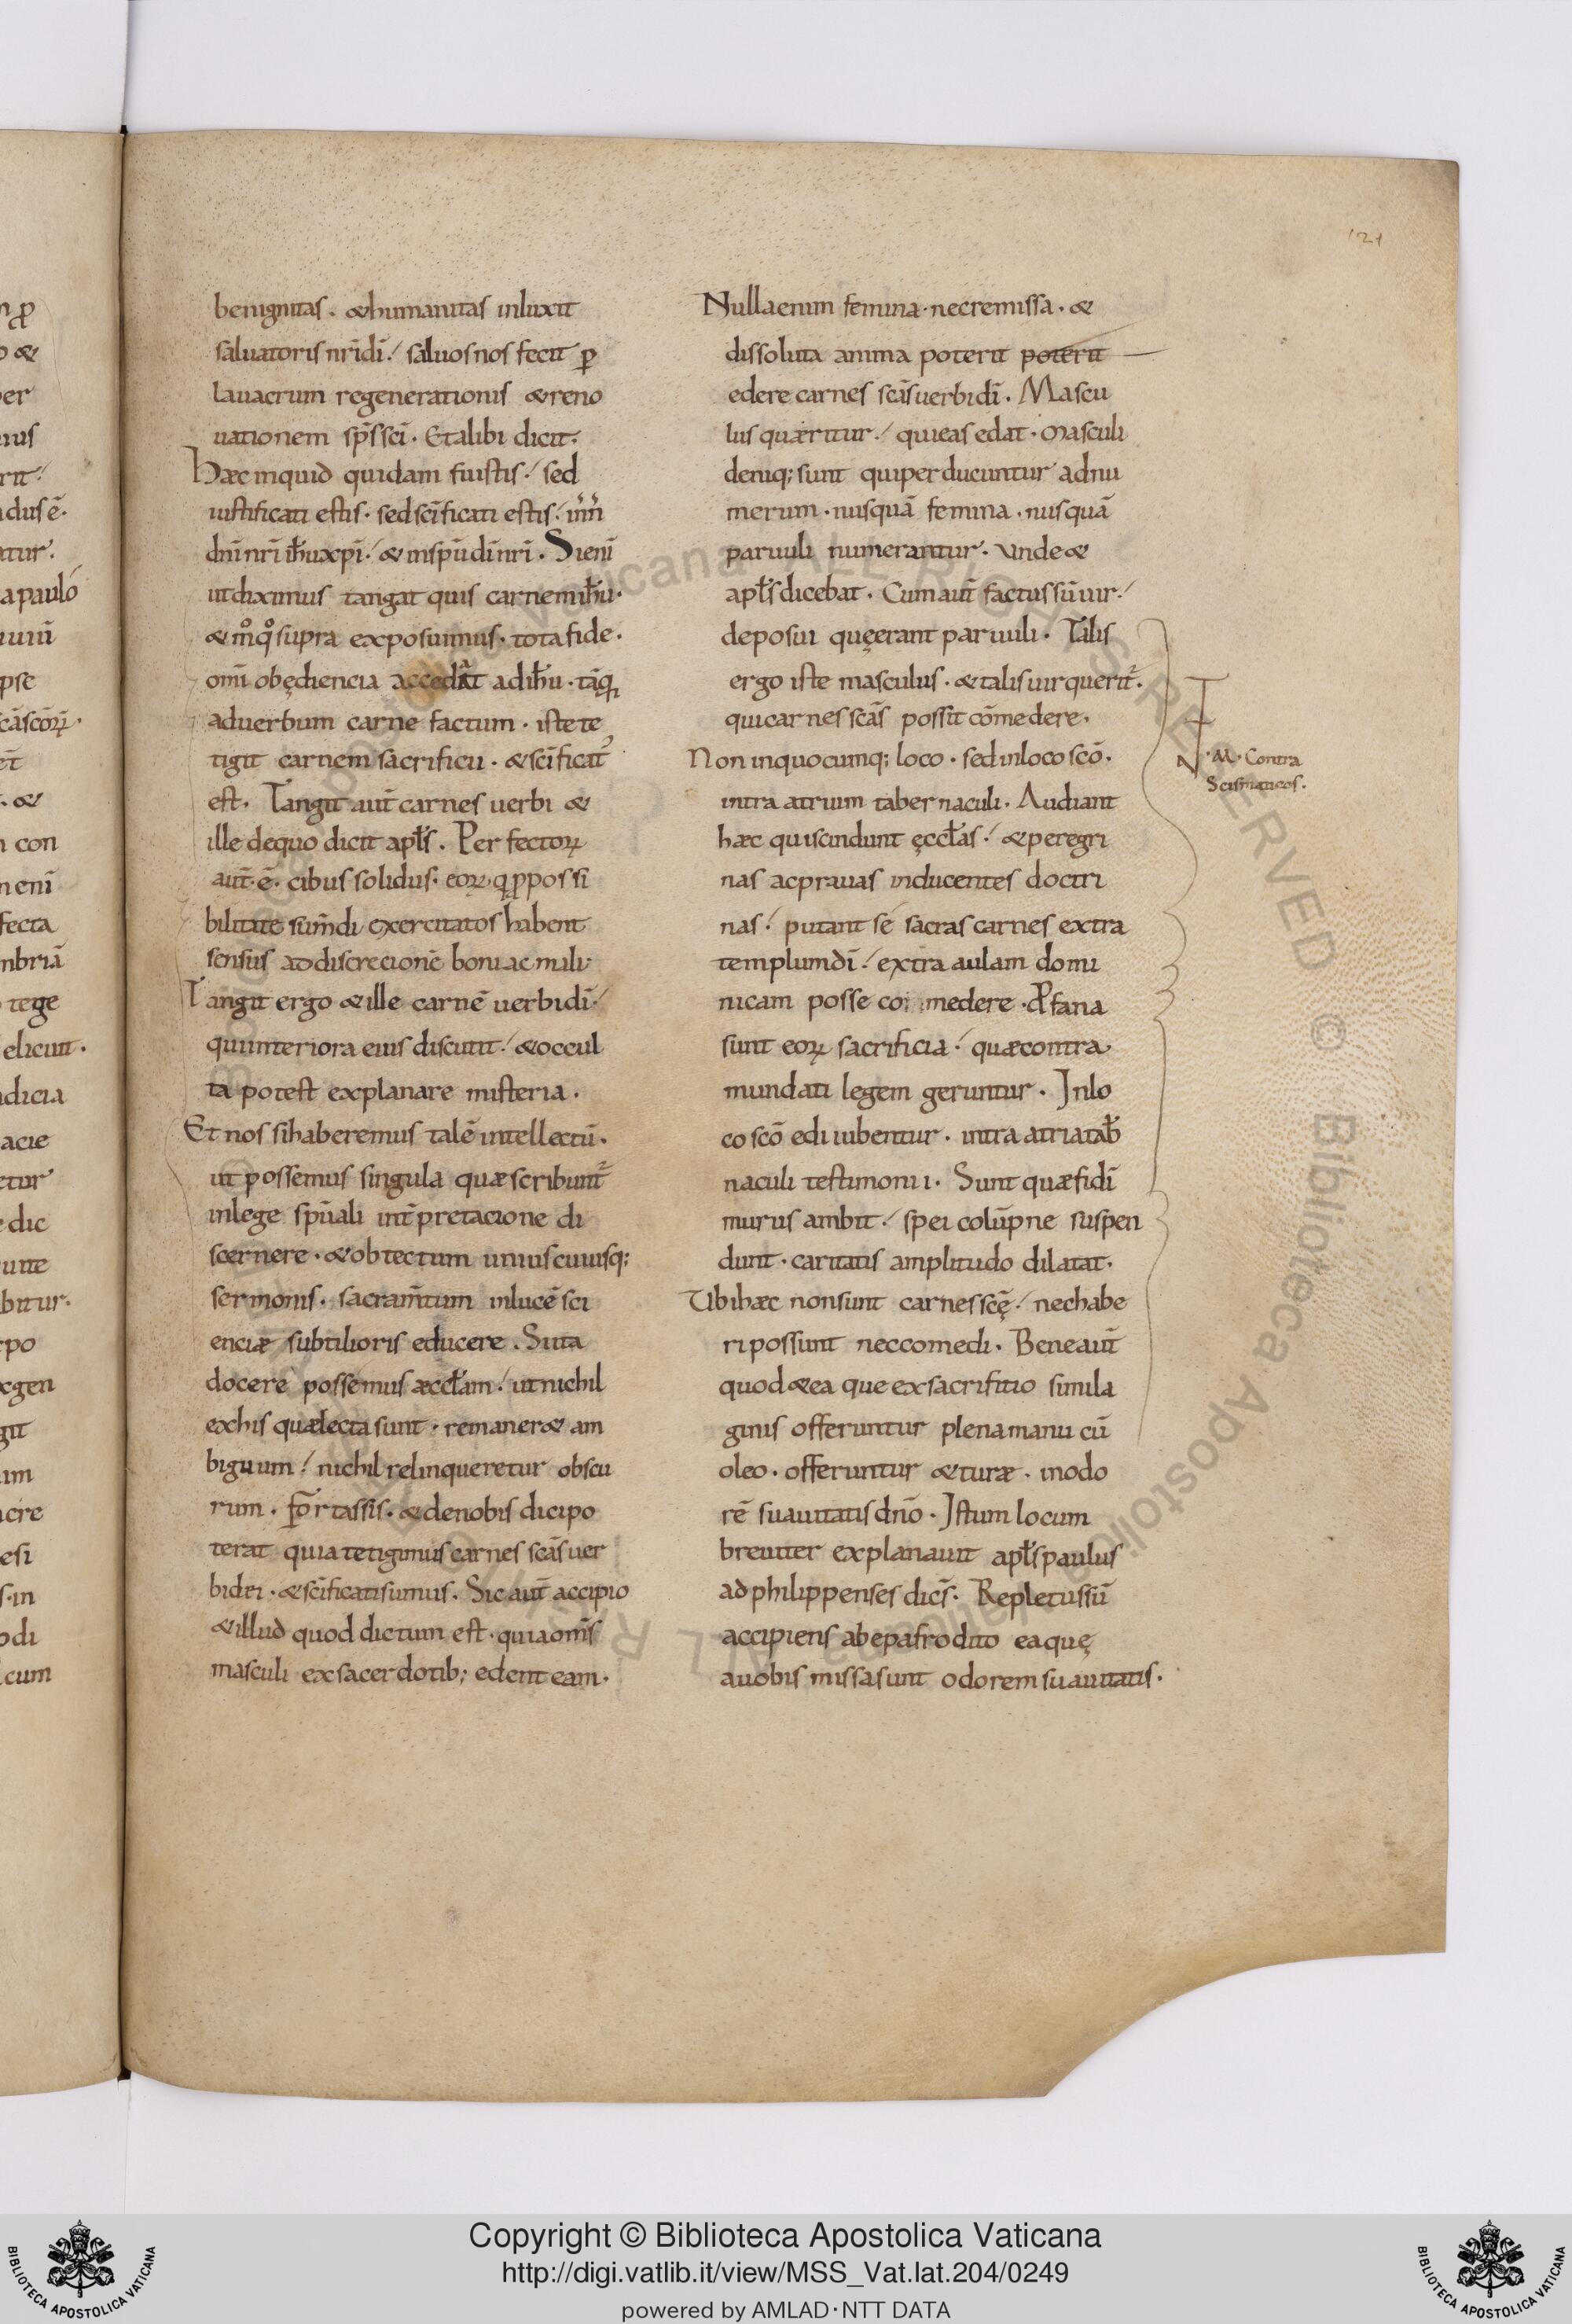 121
benignitas . & humanitas inluxit
saluatoris nr̄i dī ./ saluos nos fecit ꝑ
lauacrum regenerationis & reno
uationem sp̄s sc̄i . Et alibi dicit .
Hæc inquid quidam fuistis ./ sed
iustificati estis . sed sc̄ificati estis ./ in nn̄
dn̄i nr̄i ih̄u xp̄i ./ & in sp̄u dī nr̄i . Si enī
ut diximus tangat quis carnem ih̄u .
& m̊ q̊ supra exposuimus . tota fide .
om̄i obędiencia accedat ad ih̄u . tāꝙ
ad uerbum carne factum . iste te
tigit carnem sacrificii . & sc̄ificat᷎
est . Tangit aut̄ carnes uerbi &
ille de quo dicit apl̄s . Perfectoꝝ
aut̄ . ē . cibus solidus . eoꝝ q ꝓ possi
bilitate sum̄di exercitatos habent
sensus ad discrecionē boni ac mali
Tangit ergo & ille carnē uerbi dī ./
qui interiora eius discutit ./ & occul
ta potest explanare misteria .
Et nos si haberemus talē intellectū .
ut possemus singula quæ scribunt̄
in lege sp̄uali int̄pretacione di
scernere . & obtectum uniuscuiusq;
sermonis . sacram̄tum in lucē sci
enciæ subtilioris educere . Si ita
docere possemus æccl̄am ./ ut nichil
ex his quæ lecta sunt . remaner& am
biguum ./ nichil relinqueretur obscu
rum . fōrtassis . & de nobis dici po
terat quia tetigimus carnes sc̄as uer
bi dei . & sc̄ificati sumus . Sic aut̄ accipio
& illud quod dictum est . quia om̄s
masculi ex sacerdotib; edent eam .
Nulla enim femina . nec remissa . &
dissoluta anima poterit poterit
edere carnes sc̄as uerbi dī . Mascu
lus quæritur ./ qui eas edat . Masculi
deniq; sunt qui perducuntur ad nu
merum . nusquā femina . nusquā
paruuli numerantur . Vnde &
apl̄s dicebat . Cum aut̄ factus sū uir ./
deposui quę erant paruuli . Talis
ergo iste masculus . & talis uir querit̄ .
qui carnes sc̄as possit cōmedere .
Non in quocumq; loco . sed in loco sc̄o .
intra atrium tabernaculi . Audiant
hæc qui scindunt ęccl̄as ./ & peregri
nas ac prauas inducentes doctri
nas ./ putant se sacras carnes extra
templum dī ./ extra aulam domi
nicam posse co medere . Ꝓfana
sunt eoꝝ sacrificia ./ quæ contra
mundati legem geruntur . In lo
co sc̄o edi iubentur . intra atria tab̄
naculi testimonii . Sunt quæ fidī
murus ambit ./ spei colūpne suspen
dunt . caritatis amplitudo dilatat .
Vbi hæc non sunt carnes sc̄ę ./ nec habe
ri possunt nec comedi . Bene aut̄
quod & ea que ex sacrifitio simila
ginis offeruntur plena manu cū
oleo . offeruntur & turæ . in odo
rē suauitatis dn̄o . Istum locum
breuiter explanauit apl̄s paulus
ad philippenses dic̄s . Repletus sū
accipiens ab epafrodito ea quę
a uobis missa sunt odorem suauitatis .
.M. Contra
Scismaticos .
Copyright © Biblioteca Apostolica Vaticana
http://digi.vatlib.it/view/MSS_Vat.lat.204/0249
powered by AMLAD·NTT DATA
BIBLIOTECA APOSTOLICA VATICANA
BIBLIOTECA APOSTOLICA VATICANA